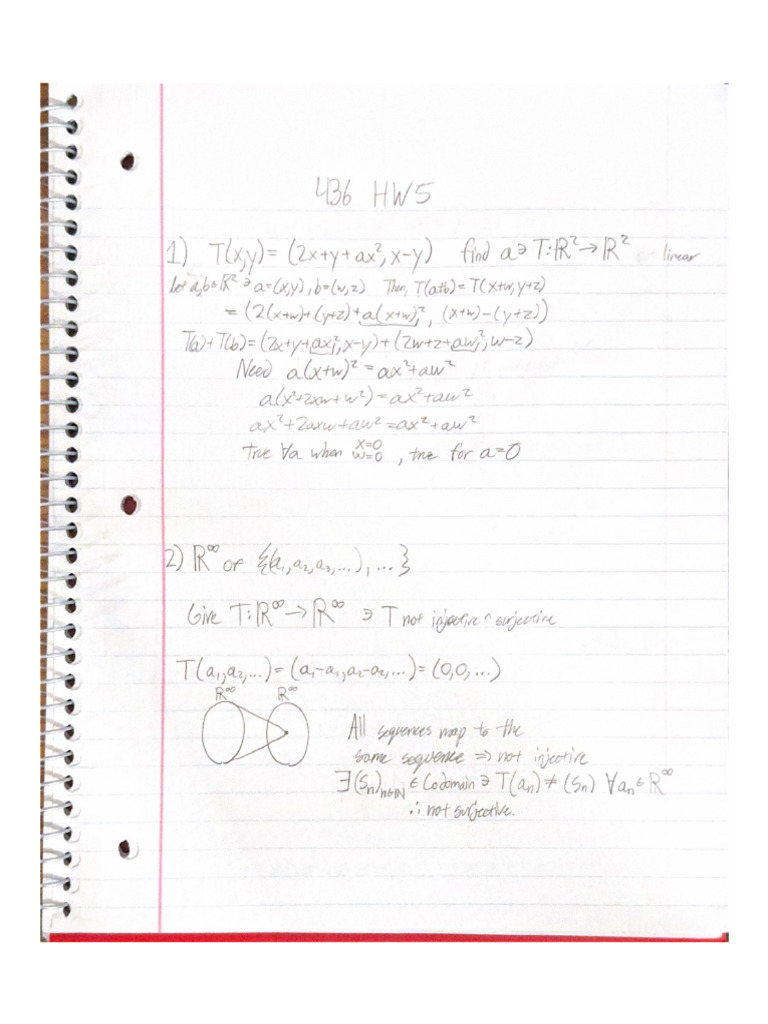 436 HW5
1) T(x,y) = (2x+y+ax², x-y) find a ∋ T:ℝ²→ℝ² linear
Let a,b∈ℝ² ∋ a=(x,y), b=(w,z) Then, T(a+b)=T(x+w, y+z)
= (2(x+w)+(y+z)+a(x+w)², (x+w)-(y+z))
T(a)+T(b)=(2x+y+ax², x-y)+(2w+z+aw², w-z)
Need a(x+w)²=ax²+aw²
a(x²+2xw+w²)=ax²+aw²
ax²+2axw+aw²=ax²+aw²
true ∀a when x=0 w=0, true for a=0
2) ℝ^∞ of {(a₁,a₂,a₃,...),...}
Give T:ℝ^∞→ℝ^∞ ∋ T not injective ^ surjective
T(a₁,a₂,...)=(a₁-a₁,a₂-a₂,...)=(0,0,...)
ℝ^∞ ℝ^∞
All sequences map to the
same sequence ⇒ not injective
∃(Sₙ)ₙ∈ℕ ∈ Codomain ∋ T(aₙ)≠(Sₙ) ∀aₙ∈ℝ^∞
∴ not surjective.